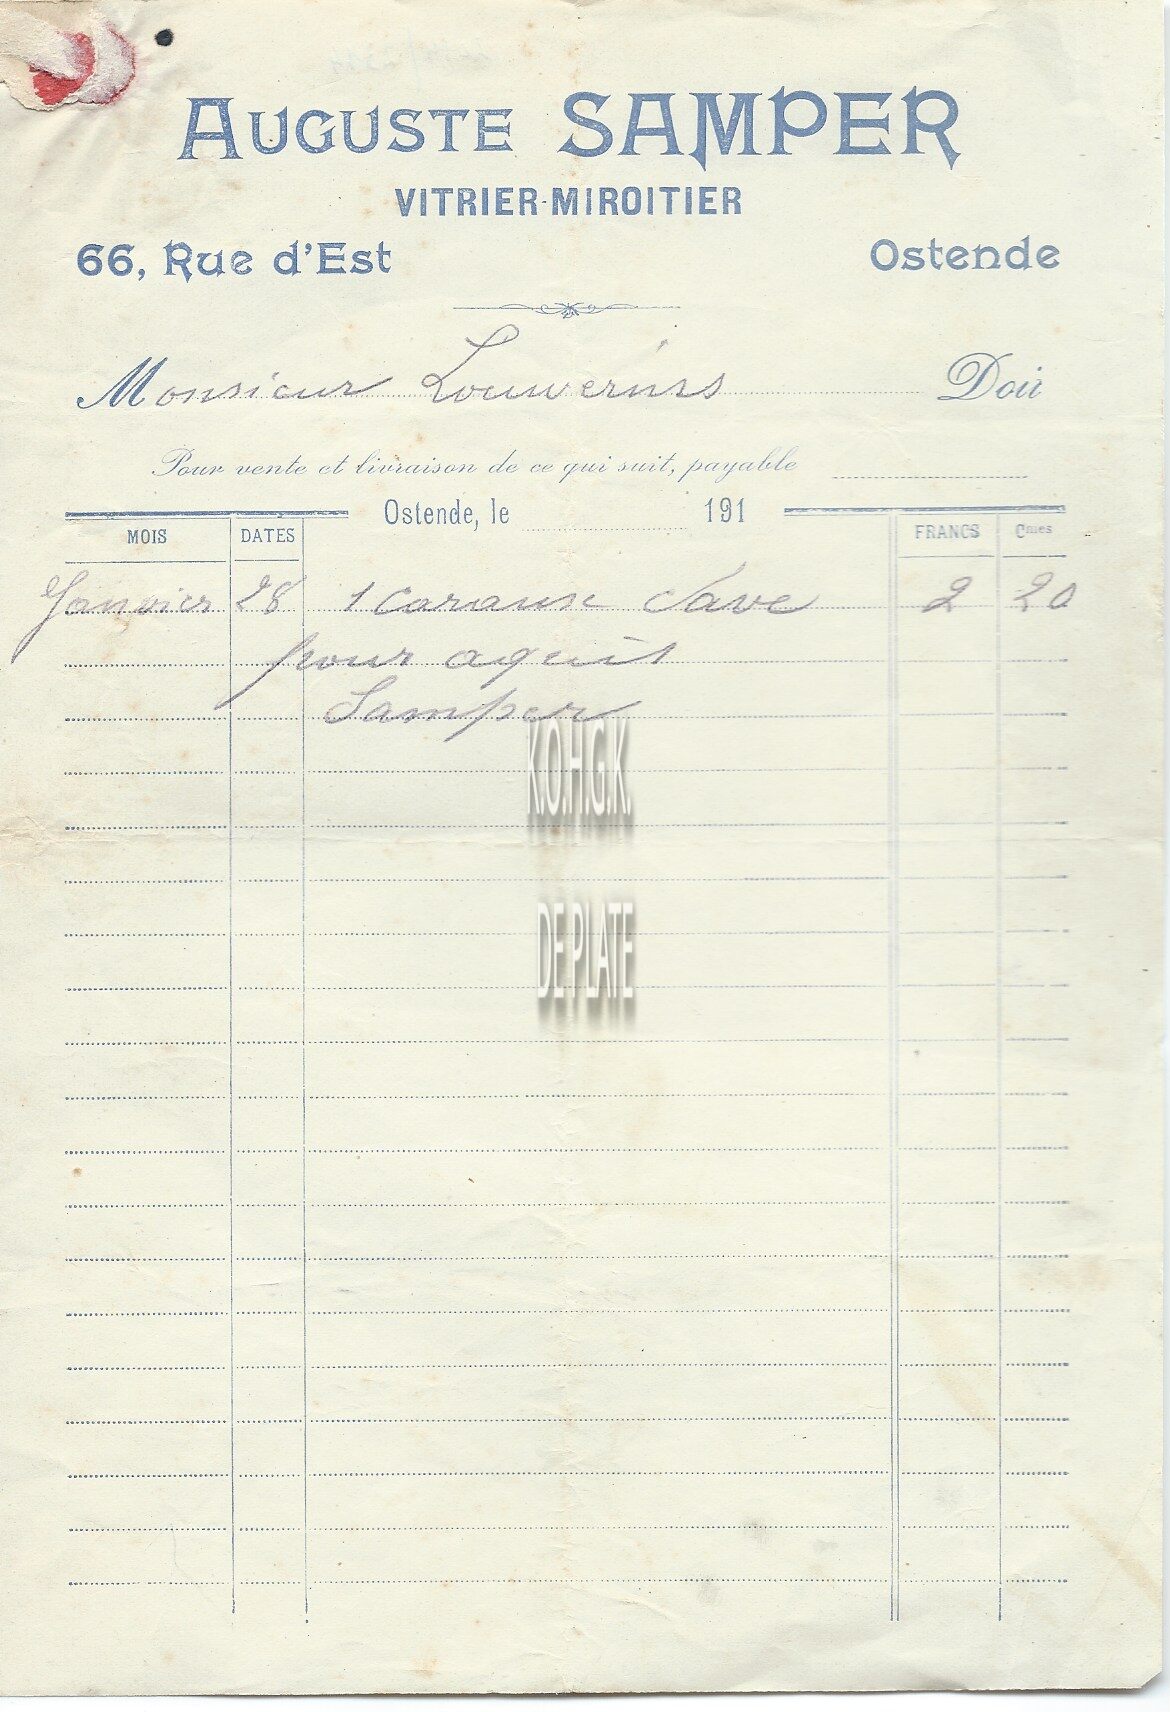 AUGUSTE SAMPER
VITRIER-MIROITIER
66, Rue d'Est Ostende
Monsieur Louwerins Doit
Pour vente et livraison de ce qui suit, payable
Ostende, le 191
MOIS DATES FRANCS Cmes
Janvier 28 1 2 20
pour aquit
Samper
K.O.H.G.K.
DE PLATE